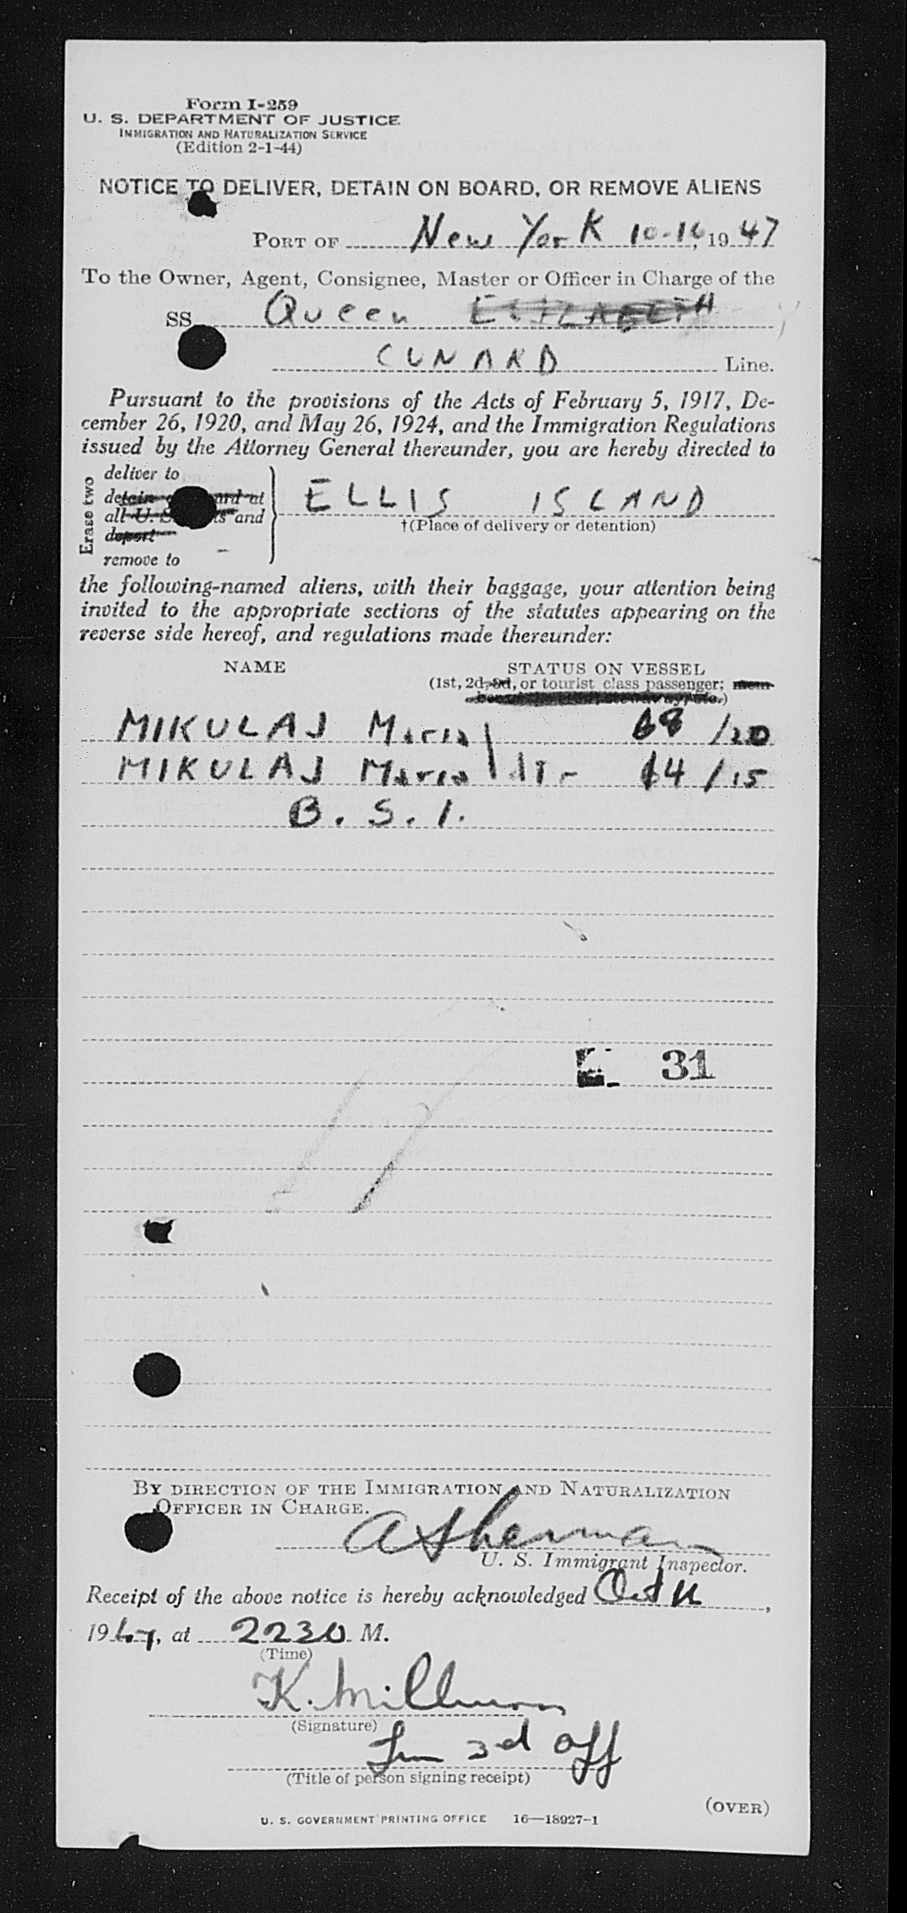 Form I-259
U. S. DEPARTMENT OF JUSTICE
IMMIGRATION AND NATURALIZATION SERVICE
(Edition 2-1-44)
NOTICE TO DELIVER, DETAIN ON BOARD, OR REMOVE ALIENS
PORT OF New York 10-16, 1947
To the Owner, Agent, Consignee, Master or Officer in Charge of the
SS Queen ELIZABETH
CUNARD Line.
Pursuant to the provisions of the Acts of February 5, 1917, De-
cember 26, 1920, and May 26, 1924, and the Immigration Regulations
issued by the Attorney General thereunder, you are hereby directed to
Erase two
deliver to
detain on board at
all U. S. ports and
deport
remove to
ELLIS ISLAND
†(Place of delivery or detention)
the following-named aliens, with their baggage, your attention being
invited to the appropriate sections of the statutes appearing on the
reverse side hereof, and regulations made thereunder:
NAME STATUS ON VESSEL
(1st, 2d, 3d, or tourist class passenger; mem-
MIKULAJ Maria 68/20
MIKULAJ Maria dtr 64/15
B. S. I.
31
BY DIRECTION OF THE IMMIGRATION AND NATURALIZATION
OFFICER IN CHARGE.
A Sherman
U. S. Immigrant Inspector.
Receipt of the above notice is hereby acknowledged Oct 16,
1947, at 2230 M.
(Time)
K. Millman
(Signature)
Jun 3rd Off
(Title of person signing receipt)
(OVER)
U. S. GOVERNMENT PRINTING OFFICE 16—18927-1